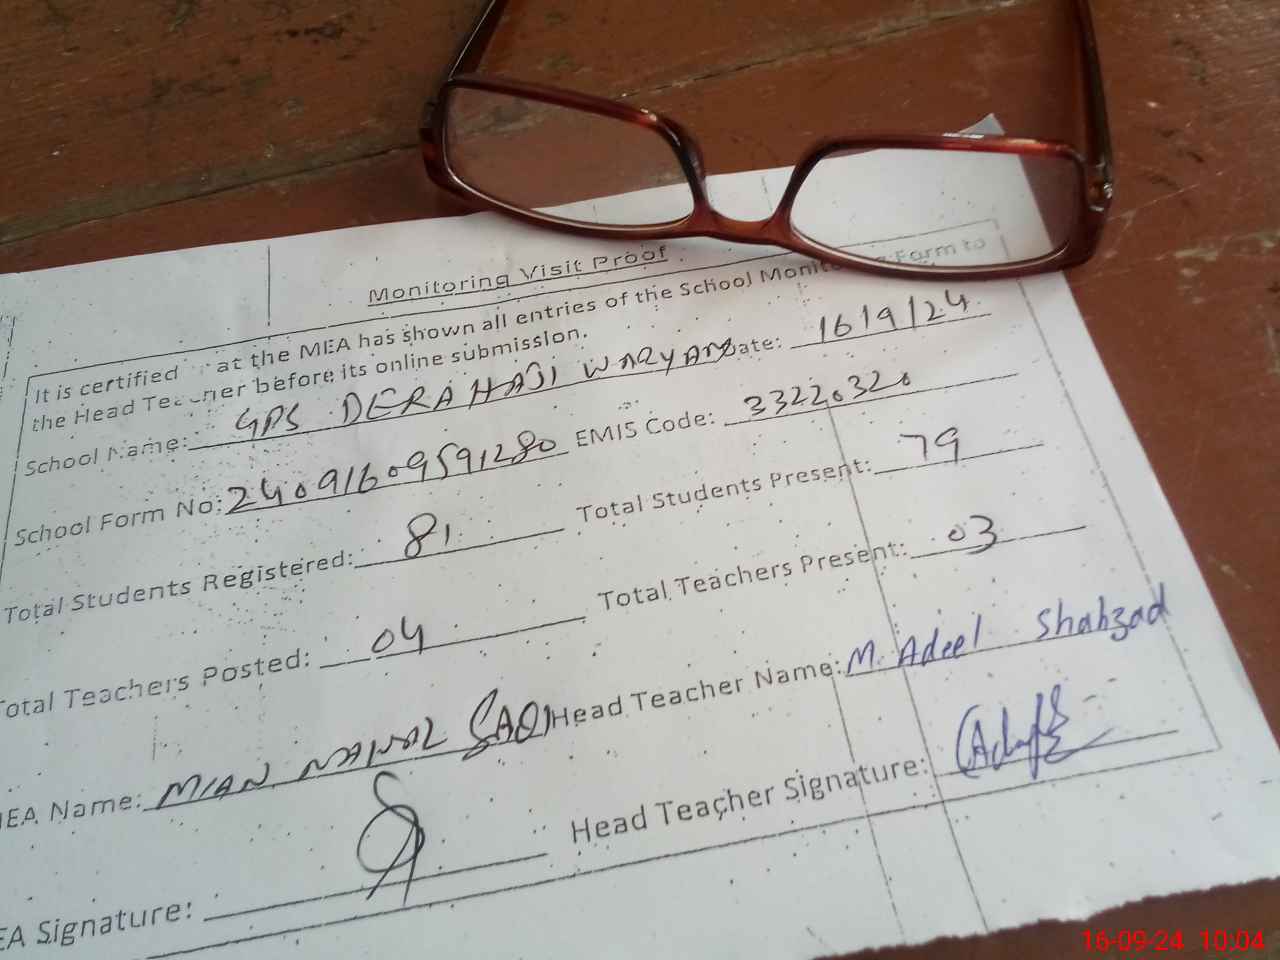 Monitoring Visit Proof
It is certified at the MEA has shown all entries of the School Monitoring Form to
the Head Teacher before its online submission.
School Name: GPS DERA HAJI WARYAM Date: 16/9/24
School Form No: 24091609591280 EMIS Code: 33220320
Total Students Registered: 81 Total Students Present: 79
Total Teachers Posted: 04 Total Teachers Present: 03
MEA Name: MIAN Head Teacher Name: M. Adeel Shahzad
EA Signature: Head Teacher Signature:
16-09-24 10:04